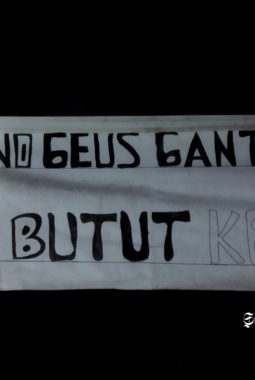 NO GEUS GANT
BUTUT